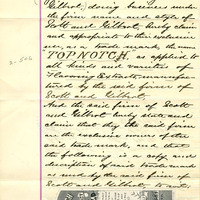 Gilbert, doing business under
the firm name and style of
Scott and Gilbert, hereby claim
and appropriate to their exclusive
use, as a trade mark, the name
TOP NOTCH, as applied to
all kinds and varieties of
Flavoring Extracts, manufac-
tured by the said firm of
Scott and Gilbert.
And the said firm of Scott
and Gilbert hereby state and
claim that they the said firm
are the exclusive owners of the
said trade mark, and that
the following is a copy and
description of said trade mark
as used by the said firm of
Scott and Gilbert